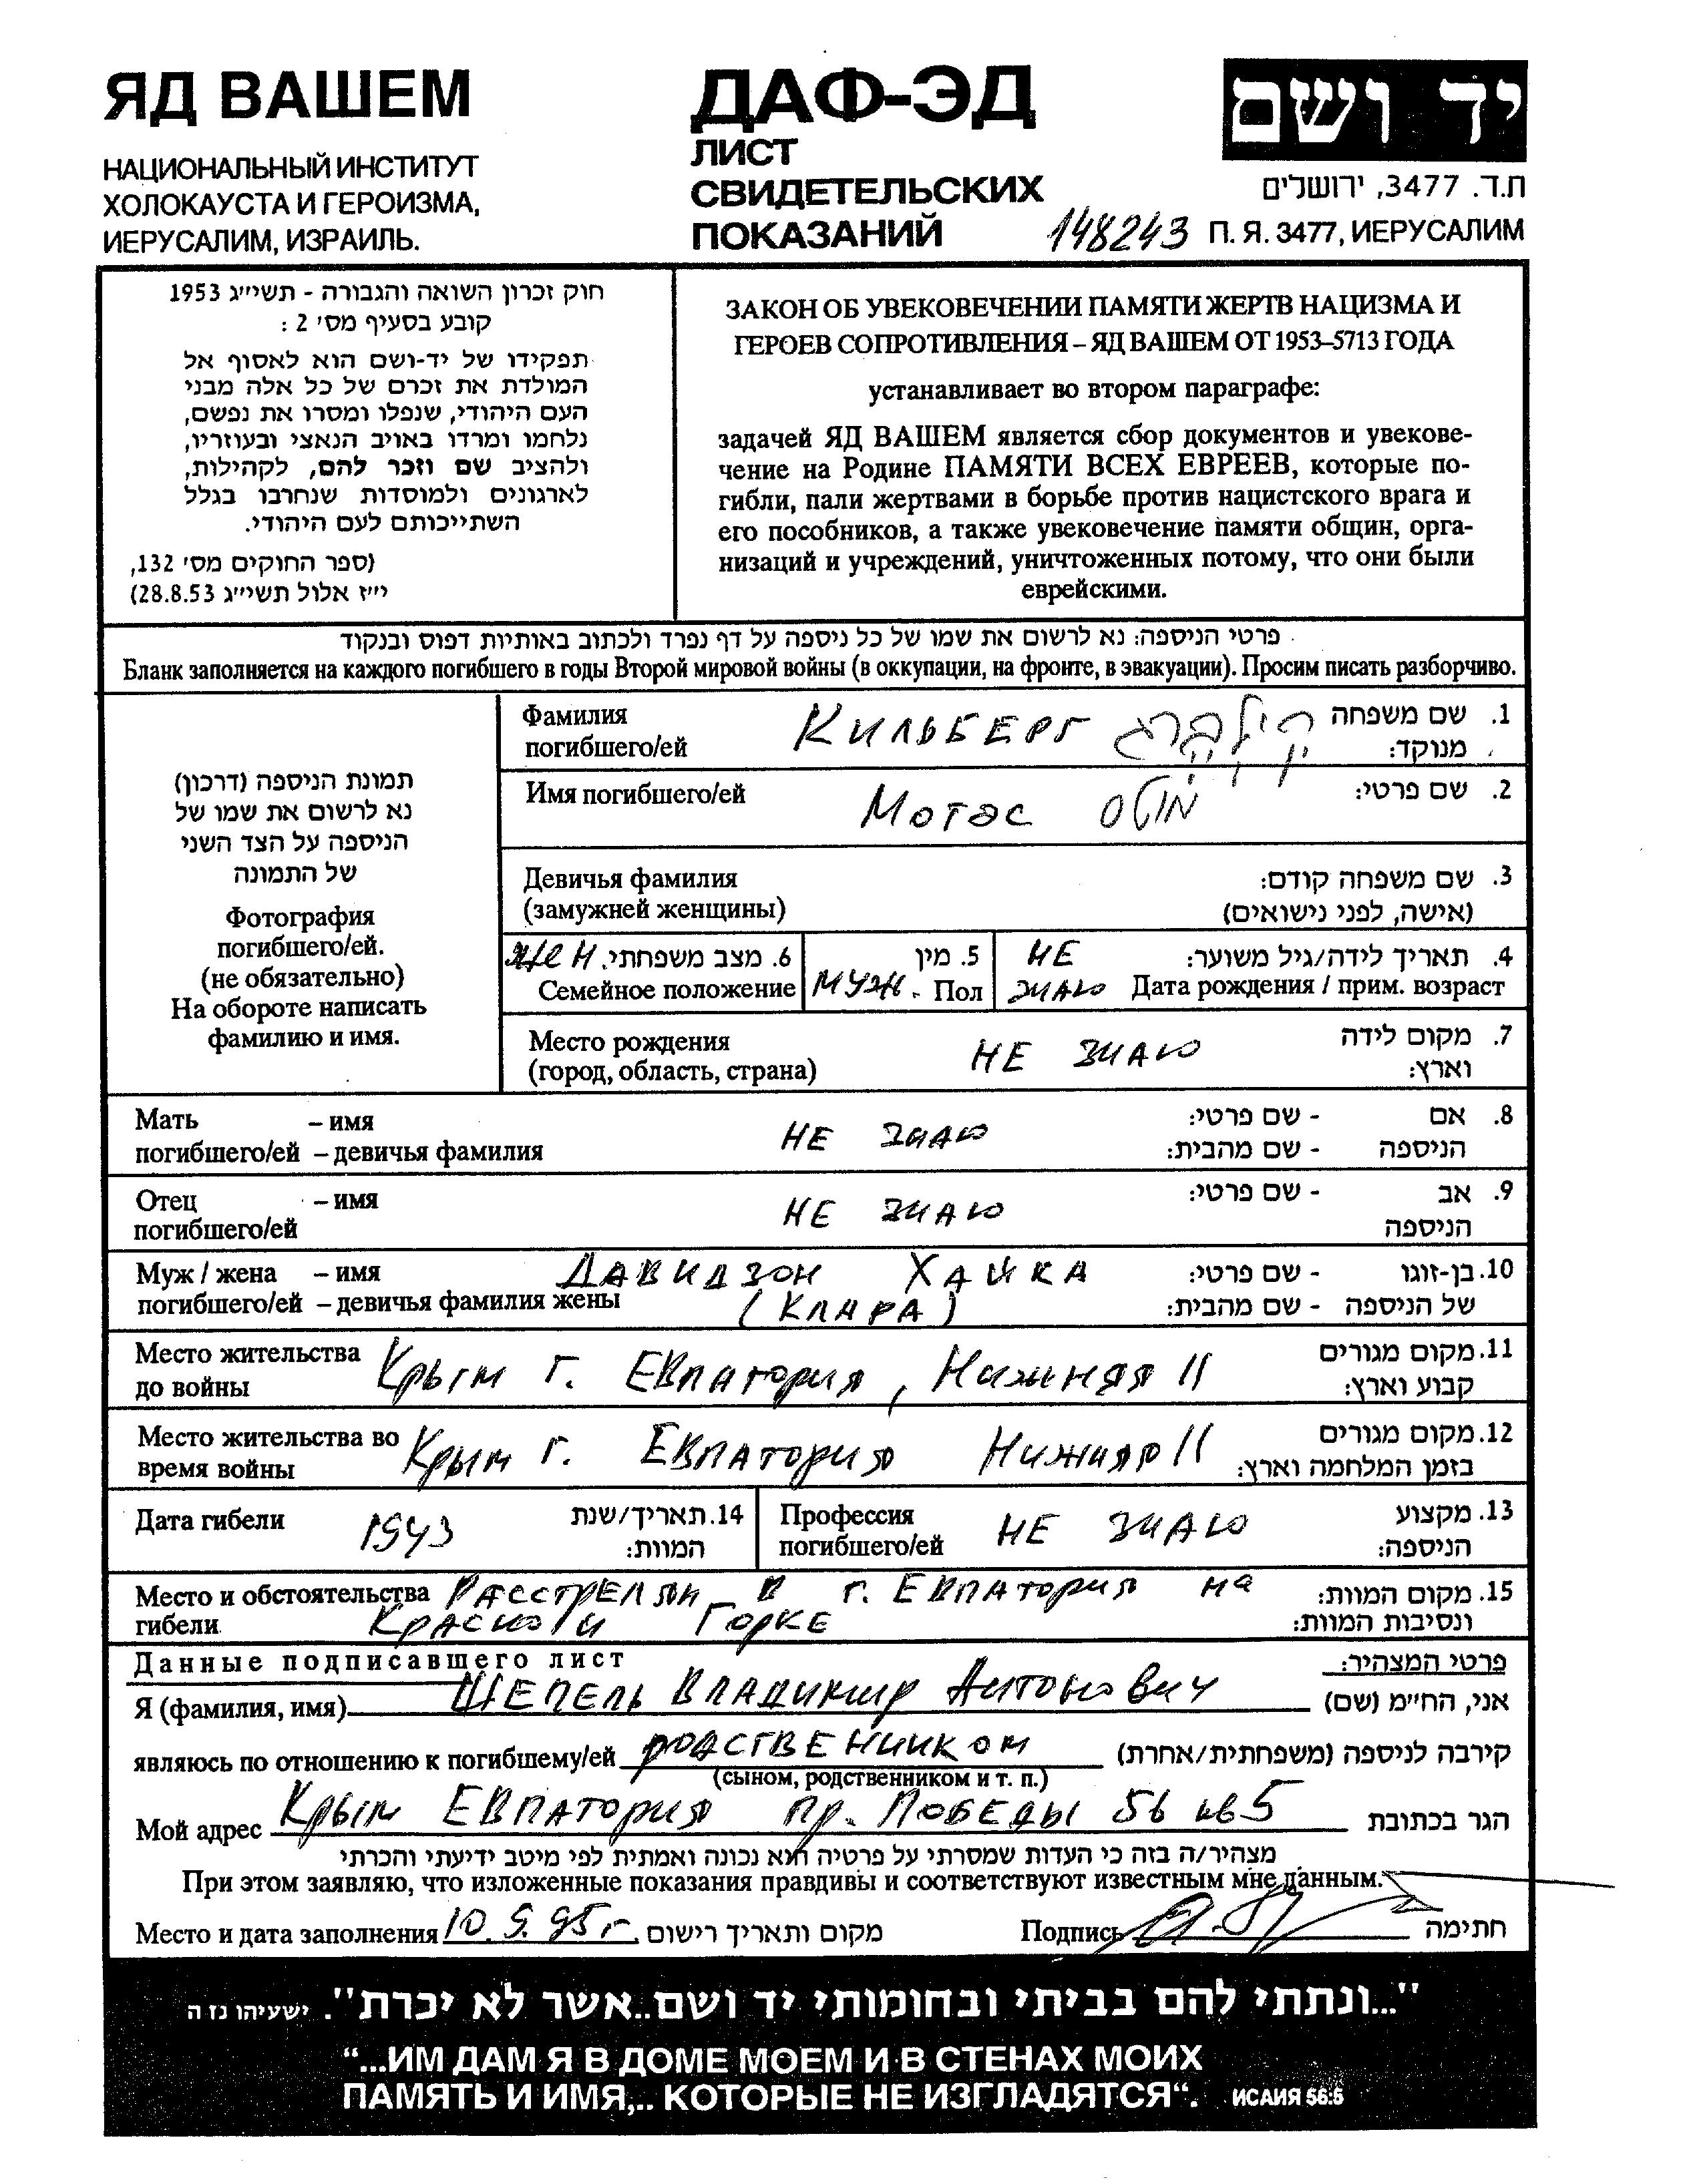 ЯД ВАШЕМ
НАЦИОНАЛЬНЫЙ ИНСТИТУТ
ХОЛОКАУСТА И ГЕРОИЗМА,
ИЕРУСАЛИМ, ИЗРАИЛЬ.
ДАФ-ЭД
ЛИСТ
СВИДЕТЕЛЬСКИХ
ПОКАЗАНИЙ
148243
יד ושם
ת.ד. 3477, ירושלים
П. Я. 3477, ИЕРУСАЛИМ
חוק זכרון השואה והגבורה - תשי״ג 1953
קובע בסעיף מס׳ 2 :
תפקידו של יד-ושם הוא לאסוף אל
המולדת את זכרם של כל אלה מבני
העם היהודי, שנפלו ומסרו את נפשם,
נלחמו ומרדו באויב הנאצי ובעוזריו,
ולהציב שם וזכר להם, לקהילות,
לארגונים ולמוסדות שנחרבו בגלל
השתייכותם לעם היהודי.
(ספר החוקים מס׳ 132,
י״ז אלול תשי״ג 28.8.53)
ЗАКОН ОБ УВЕКОВЕЧЕНИИ ПАМЯТИ ЖЕРТВ НАЦИЗМА И
ГЕРОЕВ СОПРОТИВЛЕНИЯ – ЯД ВАШЕМ ОТ 1953–5713 ГОДА
устанавливает во втором параграфе:
задачей ЯД ВАШЕМ является сбор документов и увекове-
чение на Родине ПАМЯТИ ВСЕХ ЕВРЕЕВ, которые по-
гибли, пали жертвами в борьбе против нацистского врага и
его пособников, а также увековечение памяти общин, орга-
низаций и учреждений, уничтоженных потому, что они были
еврейскими.
פרטי הניספה: נא לרשום את שמו של כל ניספה על דף נפרד ולכתוב באותיות דפוס ובנקוד
Бланк заполняется на каждого погибшего в годы Второй мировой войны (в оккупации, на фронте, в эвакуации). Просим писать разборчиво.
תמונת הניספה (דרכון)
נא לרשום את שמו של
הניספה על הצד השני
של התמונה
Фотография
погибшего/ей.
(не обязательно)
На обороте написать
фамилию и имя.
Фамилия КИЛЬБЕРГ קילברג 1. שם משפחה
погибшего/ей מנוקד:
Имя погибшего/ей Мотэс מוטס 2. שם פרטי:
Девичья фамилия 3. שם משפחה קודם:
(замужней женщины) (אישה, לפני נישואים)
жен 6. מצב משפחתי. 5. מין НЕ 4. תאריך לידה/גיל משוער:
Семейное положение МУЖ. Пол ЗНАЮ Дата рождения / прим. возраст
Место рождения НЕ ЗНАЮ 7. מקום לידה
(город, область, страна) וארץ:
Мать – имя НЕ ЗНАЮ - שם פרטי: 8. אם
погибшего/ей – девичья фамилия - שם מהבית: הניספה
Отец – имя НЕ ЗНАЮ - שם פרטי: 9. אב
погибшего/ей הניספה
Муж / жена – имя ДАВИДЗОН ХАЙКА - שם פרטי: 10. בן-זוגו
погибшего/ей – девичья фамилия жены (КЛАРА) - שם מהבית: של הניספה
Место жительства Крым г. ЕВПАТОРИЯ, Нижняя 11 11. מקום מגורים
до войны קבוע וארץ:
Место жительства во Крым г. ЕВПАТОРИЯ Нижняя 11 12. מקום מגורים
время войны בזמן המלחמה וארץ:
Дата гибели 1943 14. תאריך/שנת Профессия НЕ ЗНАЮ 13. מקצוע
המוות: погибшего/ей הניספה:
Место и обстоятельства РАССТРЕЛЯН В г. ЕВПАТОРИЯ на 15. מקום המוות:
гибели КРАСНОЙ ГОРКЕ ונסיבות המוות:
Данные подписавшего лист פרטי המצהיר:
Я (фамилия, имя) ШЕПЕЛЬ ВЛАДИМИР АНТОНОВИЧ אני, הח״מ (שם)
являюсь по отношению к погибшему/ей РОДСТВЕННИКОМ קירבה לניספה (משפחתית/אחרת)
(сыном, родственником и т. п.)
Мой адрес Крым ЕВПАТОРИЯ пр. ПОБЕДЫ 56 кв 5 הגר בכתובת
מצהיר/ה בזה כי העדות שמסרתי על פרטיה היא נכונה ואמתית לפי מיטב ידיעתי והכרתי
При этом заявляю, что изложенные показания правдивы и соответствуют известным мне данным.
Место и дата заполнения 10.5.95г מקום ותאריך רישום Подпись חתימה
"...ונתתי להם בביתי ובחומותי יד ושם..אשר לא יכרת". ישעיהו נז ה
“...ИМ ДАМ Я В ДОМЕ МОЕМ И В СТЕНАХ МОИХ
ПАМЯТЬ И ИМЯ,.. КОТОРЫЕ НЕ ИЗГЛАДЯТСЯ“. ИСАИЯ 56:5